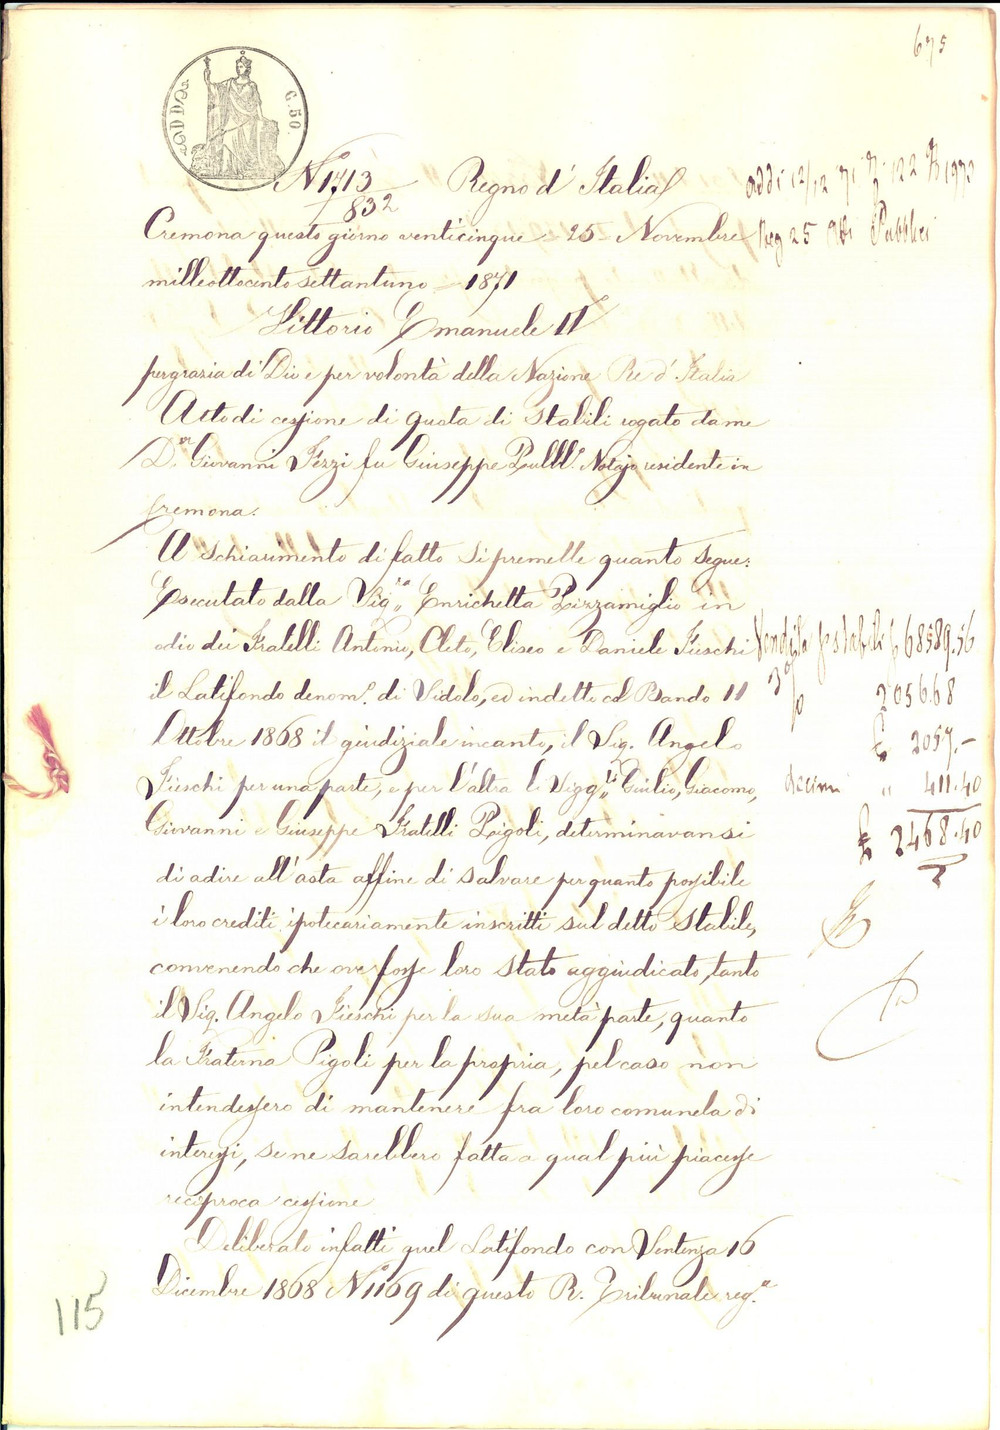 675
C. 50
N 1713
832
Regno d' Italia
addì 12/12 71 N. 122 1973
Reg 25 Atti Pubblici
Cremona questo giorno venticinque - 25 - Novembre
milleottocentosettantuno - 1871
Vittorio Emanuele II
per grazia di Dio e per volontà della Nazione Re d' Italia
Atto di cessione di quota di stabili rogato da me
D.r Giovanni Fezzi fu Giuseppe Pubbl.o Notajo residente in
Cremona.
A schiarimento di fatto si premette quanto segue:
Esecutato dalla Sig.ra Enrichetta Pizzamiglio in
odio dei Fratelli Antonio, Cleto, Eliseo e Daniele Fieschi
il Latifondo denom.o di Vidolo, ed indetto col Bando 11
Ottobre 1868 il giudiziale incanto, il Sig. Angelo
Fieschi per una parte, e per l'altra li Sigg.ri Giulio, Giacomo,
Giovanni e Giuseppe Fratelli Pigoli, determinavansi
di adire all'asta affine di salvare per quanto possibile
i loro crediti ipotecariamente inscritti sul detto Stabile,
convenendo che ove fosse loro stato aggiudicato, tanto
il Sig. Angelo Fieschi per la sua metà parte, quanto
la Fraterna Pigoli per la propria, pel caso non
intendessero di mantenere fra loro comunela di
interessi, se ne sarebbero fatta a qual più piacesse
reciproca cessione
Deliberato infatti quel Latifondo con Sentenza 16
Dicembre 1868 N 1169 di questo R. Tribunale reg.a
Vendita stabili £ 68589.56
3 %
205668
£ 2057.-
decimi " 411.40
£ 2468.40
115